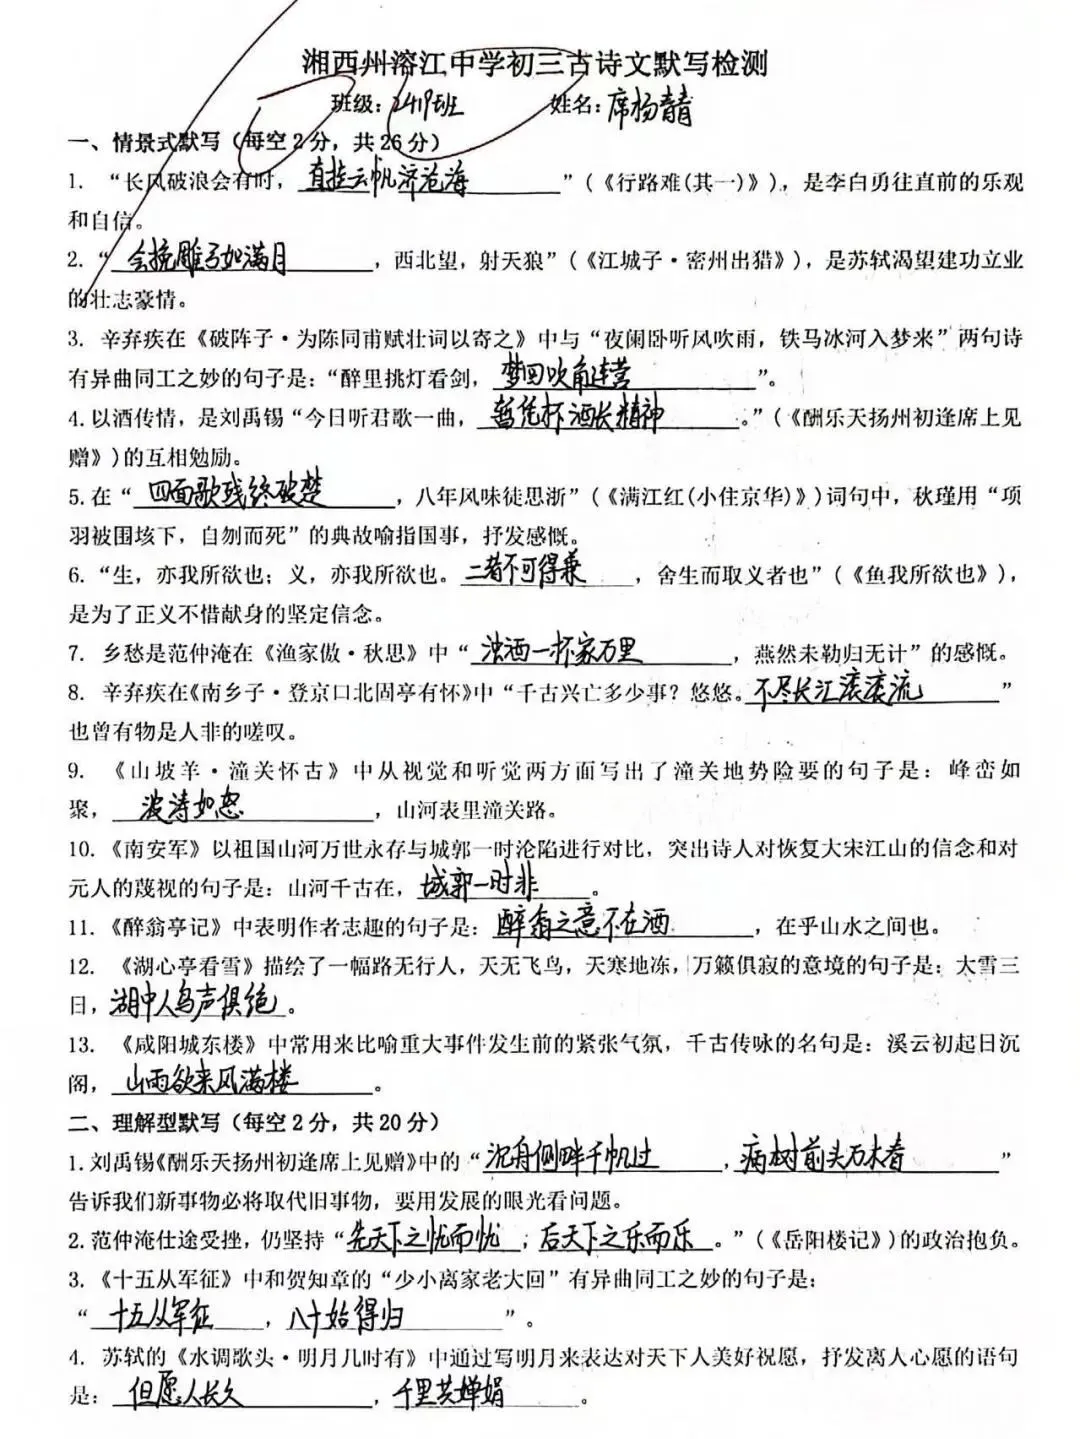 湘西州溶江中学初三古诗文默写检测
班级：2419班 姓名：席杨青青
一、情景式默写（每空2分，共26分）
1. “长风破浪会有时，直挂云帆济沧海”（《行路难(其一)》），是李白勇往直前的乐观
和自信。
2. “会挽雕弓如满月，西北望，射天狼”（《江城子·密州出猎》），是苏轼渴望建功立业
的壮志豪情。
3. 辛弃疾在《破阵子·为陈同甫赋壮词以寄之》中与“夜阑卧听风吹雨，铁马冰河入梦来”两句诗
有异曲同工之妙的句子是：“醉里挑灯看剑，梦回吹角连营”。
4.以酒传情，是刘禹锡“今日听君歌一曲，暂凭杯酒长精神。”（《酬乐天扬州初逢席上见
赠》）的互相勉励。
5.在“四面歌残终破楚，八年风味徒思浙”（《满江红(小住京华)》）词句中，秋瑾用“项
羽被围垓下，自刎而死”的典故喻指国事，抒发感慨。
6.“生，亦我所欲也；义，亦我所欲也。二者不可得兼，舍生而取义者也”（《鱼我所欲也》），
是为了正义不惜献身的坚定信念。
7. 乡愁是范仲淹在《渔家傲·秋思》中“浊酒一杯家万里，燕然未勒归无计”的感慨。
8. 辛弃疾在《南乡子·登京口北固亭有怀》中“千古兴亡多少事？悠悠。不尽长江滚滚流”
也曾有物是人非的嗟叹。
9. 《山坡羊·潼关怀古》中从视觉和听觉两方面写出了潼关地势险要的句子是：峰峦如
聚，波涛如怒，山河表里潼关路。
10.《南安军》以祖国山河万世永存与城郭一时沦陷进行对比，突出诗人对恢复大宋江山的信念和对
元人的蔑视的句子是：山河千古在，城郭一时非。
11.《醉翁亭记》中表明作者志趣的句子是：醉翁之意不在酒，在乎山水之间也。
12. 《湖心亭看雪》描绘了一幅路无行人，天无飞鸟，天寒地冻，万籁俱寂的意境的句子是：大雪三
日，湖中人鸟声俱绝。
13. 《咸阳城东楼》中常用来比喻重大事件发生前的紧张气氛，千古传咏的名句是：溪云初起日沉
阁，山雨欲来风满楼。
二、理解型默写（每空2分，共20分）
1.刘禹锡《酬乐天扬州初逢席上见赠》中的“沉舟侧畔千帆过，病树前头万木春”
告诉我们新事物必将取代旧事物，要用发展的眼光看问题。
2.范仲淹仕途受挫，仍坚持“先天下之忧而忧，后天下之乐而乐。”（《岳阳楼记》）的政治抱负。
3.《十五从军征》中和贺知章的“少小离家老大回”有异曲同工之妙的句子是：
“十五从军征，八十始得归”。
4. 苏轼的《水调歌头·明月几时有》中通过写明月来表达对天下人美好祝愿，抒发离人心愿的语句
是：但愿人长久，千里共婵娟。